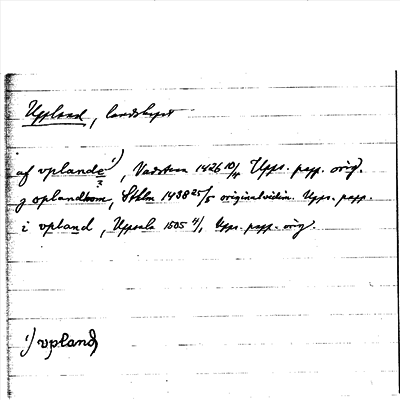 Uppland, landskapet
af vplande¹⁾, Vadstena 1426 10/11 Upps. papp. orig.
?
j oplandhom, Sthlm 1438 25/5 originalvidim. Upps. papp.
i vpland, Uppsala 1505 4/1 Upps. papp. orig.
¹⁾ vpland